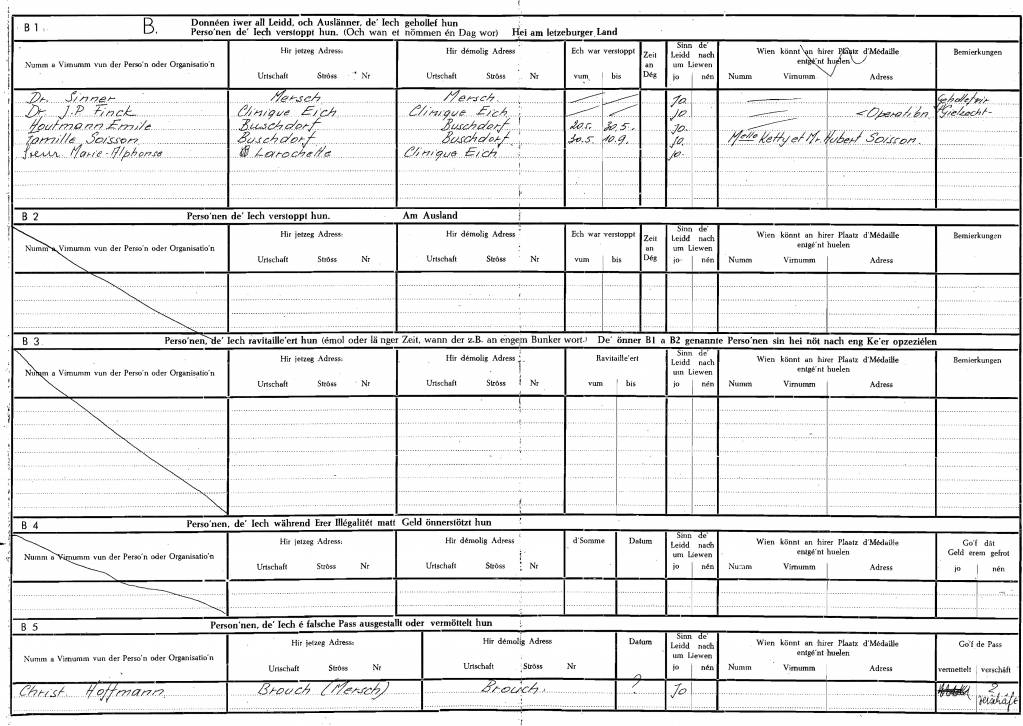 B 1 B. Donnéen iwer all Leidd, och Auslänner, de' Iech gehollef hun
Perso'nen de' Iech verstoppt hun. (Och wan et nömmen én Dag wor) Hei am letzeburger Land
Numm a Virnumm vun der Perso'n oder Organisatio'n Hir jetzeg Adress: Hir démolig Adress Ech war verstoppt Zeit an Dég Sinn de' Leidd nach um Liewen Wien könnt an hirer Plaatz d'Médaille entgé'nt huelen Bemierkungen
Urtschaft Ströss Nr Urtschaft Ströss Nr vum bis jo nén Numm Virnumm Adress
Dr. Sinner Mersch Mersch Jo.
Dr. J.P. Finck Clinique Eich Clinique Eich Jo < Operation.
Houtmann Emile Buschdorf Buschdorf 20.5. 30.5. Jo.
famille Soisson Buschdorf Buschdorf 30.5. 10.9. Jo. Melle Ketty et Mr. Hubert Soisson.
Marie-Alphonse Larochette Clinique Eich Jo.
B 2 Perso'nen de' Iech verstoppt hun. Am Ausland
Numm a Virnumm vun der Perso'n oder Organisatio'n Hir jetzeg Adress: Hir démolig Adress Ech war verstoppt Zeit an Dég Sinn de' Leidd nach um Liewen Wien könnt an hirer Plaatz d'Médaille entgé'nt huelen Bemierkungen
Urtschaft Ströss Nr Urtschaft Ströss Nr vum bis jo nén Numm Virnumm Adress
B 3 Perso'nen, de' Iech ravitaille'ert hun (émol oder länger Zeit, wann der z.B. an engem Bunker wort.) De' önner B1 a B2 genannte Perso'nen sin hei nöt nach eng Ke'er opzeziélen
Numm a Virnumm vun der Perso'n oder Organisatio'n Hir jetzeg Adress: Hir démolig Adress Ravitaille'ert Sinn de' Leidd nach um Liewen Wien könnt an hirer Plaatz d'Médaille entgé'nt huelen Bemierkungen
Urtschaft Ströss Nr Urtschaft Ströss Nr vum bis jo nén Numm Virnumm Adress
B 4 Perso'nen, de' Iech während Erer Illégalitét matt Geld önnerstötzt hun
Numm a Virnumm vun der Perso'n oder Organisatio'n Hir jetzeg Adress: Hir démolig Adress d'Somme Datum Sinn de' Leidd nach um Liewen Wien könnt an hirer Plaatz d'Médaille entgé'nt huelen Go'f dât Geld erem gefrot
Urtschaft Ströss Nr Urtschaft Ströss Nr jo nén Numm Virnumm Adress jo nén
B 5 Person'nen, de' Iech é falsche Pass ausgestallt oder vermöttelt hun
Numm a Virnumm vun der Perso'n oder Organisatio'n Hir jetzeg Adress: Hir démolig Adress Datum Sinn de' Leidd nach um Liewen Wien könnt an hirer Plaatz d'Médaille entgé'nt huelen Go'f de Pass
Urtschaft Ströss Nr Urtschaft Ströss Nr jo nén Numm Virnumm Adress vermettelt verschäft
Christ Hoffmann Brouch (Mersch) Brouch. ? Jo ? verschäft